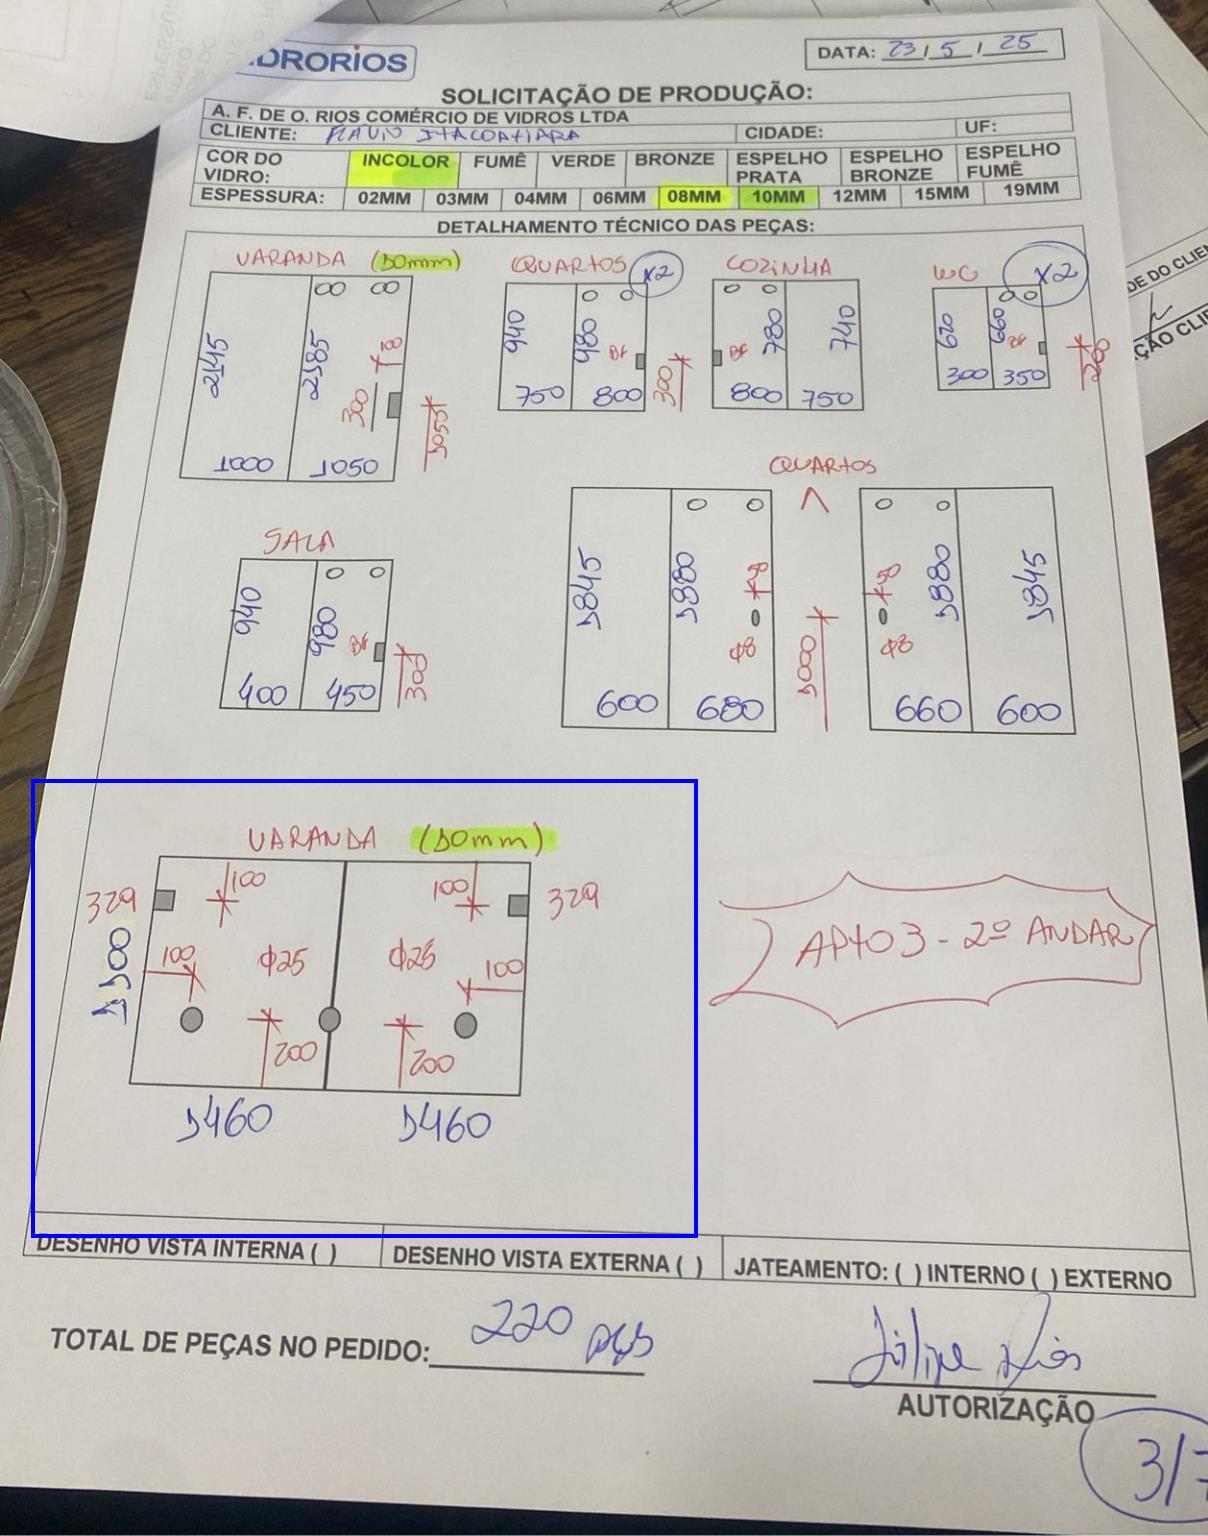 DRORIOS
DATA: 23/5/25
SOLICITAÇÃO DE PRODUÇÃO:
A. F. DE O. RIOS COMÉRCIO DE VIDROS LTDA
CLIENTE: FLAVIO ITACOATIARA CIDADE: UF:
COR DO VIDRO: INCOLOR FUMÊ VERDE BRONZE ESPELHO PRATA ESPELHO BRONZE ESPELHO FUMÊ
ESPESSURA: 02MM 03MM 04MM 06MM 08MM 10MM 12MM 15MM 19MM
DETALHAMENTO TÉCNICO DAS PEÇAS:
VARANDA (10mm) QUARTOS X2 COZINHA WC X2
2145 2185 18 300 1050
1000 1050
940 980 BF 300
750 800
BF 780 740
800 750
620 660 BF 200
300 350
QUARTOS
SALA
940 980 BF 300
400 450
1845 1880 Φ8 1000
600 680
Φ8 1880 1845
660 600
VARANDA (10mm)
329 100 100 329
1100 100 Φ25 Φ25 100
200 200
1460 1460
APTO 3 - 2º ANDAR
DESENHO VISTA INTERNA ( ) DESENHO VISTA EXTERNA ( ) JATEAMENTO: ( ) INTERNO ( ) EXTERNO
TOTAL DE PEÇAS NO PEDIDO: 220 pçs
Filipe Rios
AUTORIZAÇÃO
3/7
DE DO CLIEN
ÇÃO CLIE